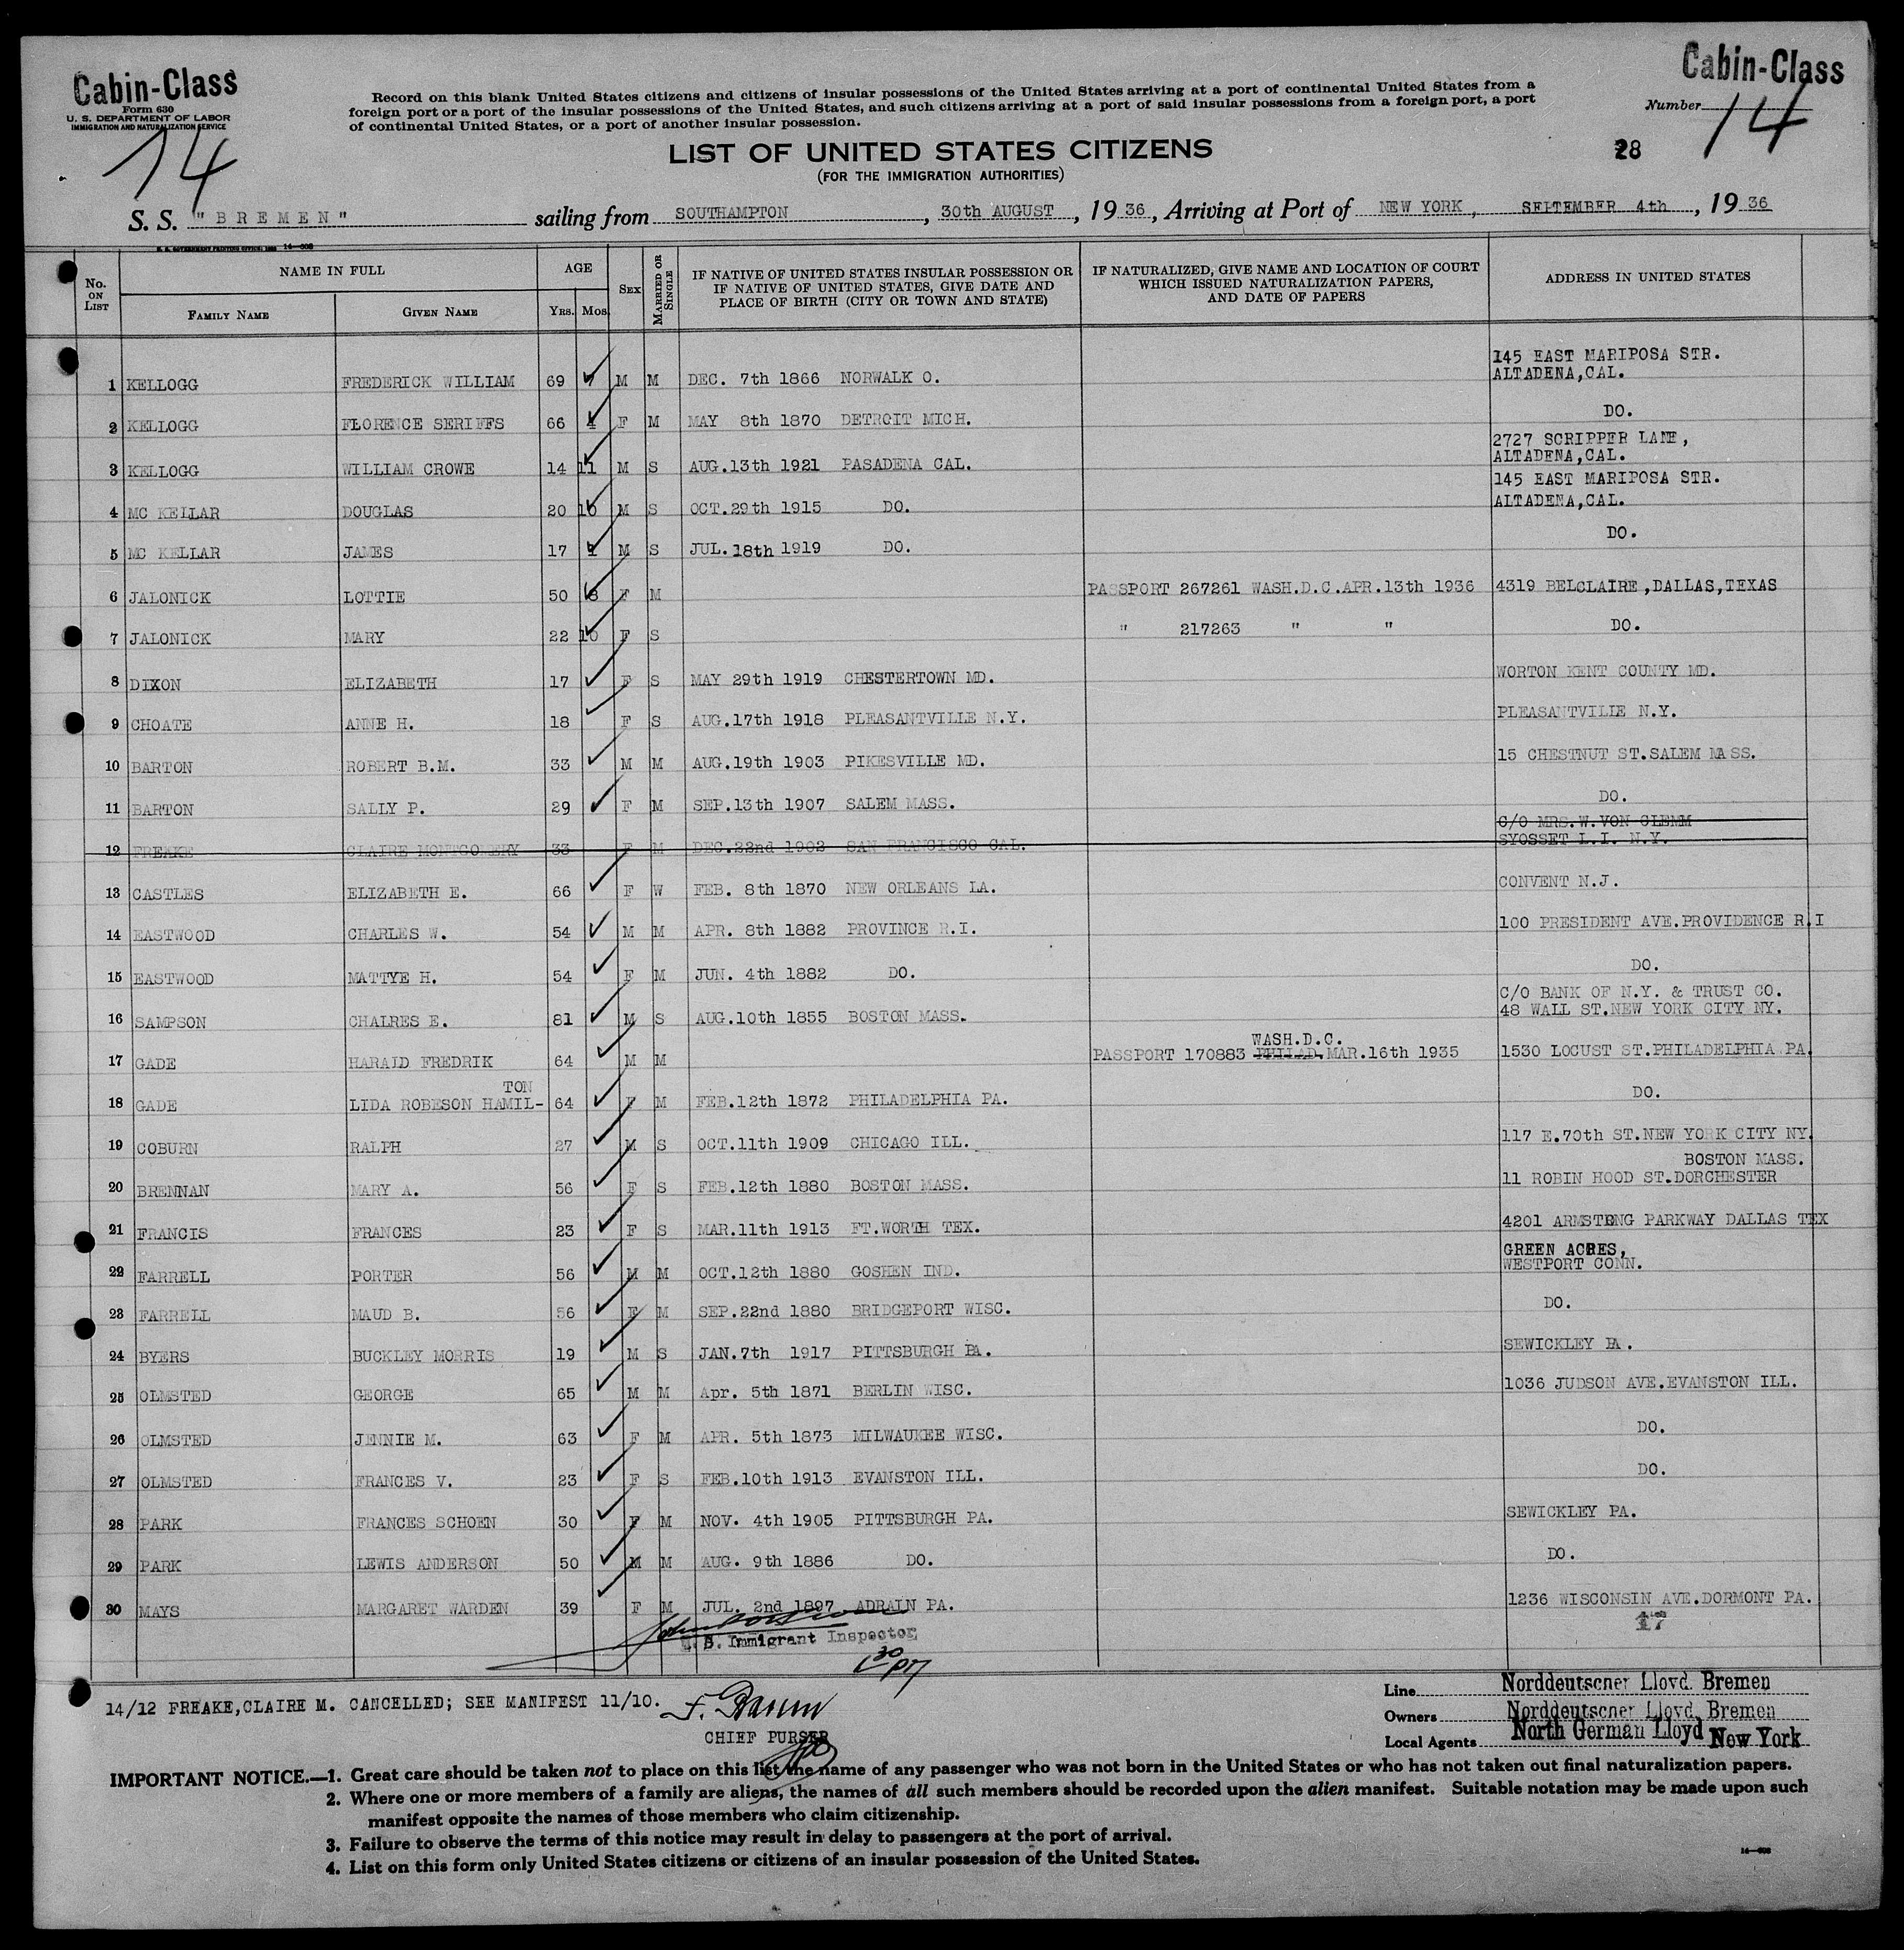 Cabin-Class
Form 630
U. S. DEPARTMENT OF LABOR
IMMIGRATION AND NATURALIZATION SERVICE
14
Record on this blank United States citizens and citizens of insular possessions of the United States arriving at a port of continental United States from a
foreign port or a port of the insular possessions of the United States, and such citizens arriving at a port of said insular possessions from a foreign port, a port
of continental United States, or a port of another insular possession.
Cabin-Class
Number 14
LIST OF UNITED STATES CITIZENS
(FOR THE IMMIGRATION AUTHORITIES)
28
S. S. "BREMEN" sailing from SOUTHAMPTON, 30th AUGUST, 1936, Arriving at Port of NEW YORK, SEPTEMBER 4th, 1936
No. ON LIST NAME IN FULL FAMILY NAME GIVEN NAME AGE YRS. MOS. SEX MARRIED OR SINGLE IF NATIVE OF UNITED STATES INSULAR POSSESSION OR IF NATIVE OF UNITED STATES, GIVE DATE AND PLACE OF BIRTH (CITY OR TOWN AND STATE) IF NATURALIZED, GIVE NAME AND LOCATION OF COURT WHICH ISSUED NATURALIZATION PAPERS, AND DATE OF PAPERS ADDRESS IN UNITED STATES
145 EAST MARIPOSA STR.
1 KELLOGG FREDERICK WILLIAM 69 M M DEC. 7th 1866 NORWALK O. ALTADENA,CAL.
2 KELLOGG FLORENCE SERIFFS 66 4 F M MAY 8th 1870 DETROIT MICH. DO.
2727 SCRIPPER LANE,
3 KELLOGG WILLIAM CROWE 14 11 M S AUG.13th 1921 PASADENA CAL. ALTADENA,CAL.
145 EAST MARIPOSA STR.
4 MC KELLAR DOUGLAS 20 10 M S OCT.29th 1915 DO. ALTADENA,CAL.
5 MC KELLAR JAMES 17 M S JUL.18th 1919 DO. DO.
6 JALONICK LOTTIE 50 F M PASSPORT 267261 WASH.D.C.APR.13th 1936 4319 BELCLAIRE,DALLAS,TEXAS
7 JALONICK MARY 22 10 F S " 217263 " " DO.
8 DIXON ELIZABETH 17 F S MAY 29th 1919 CHESTERTOWN MD. WORTON KENT COUNTY MD.
9 CHOATE ANNE H. 18 F S AUG.17th 1918 PLEASANTVILLE N.Y. PLEASANTVILLE N.Y.
10 BARTON ROBERT B.M. 33 M M AUG.19th 1903 PIKESVILLE MD. 15 CHESTNUT ST.SALEM MASS.
11 BARTON SALLY P. 29 F M SEP.13th 1907 SALEM MASS. DO.
C/O MRS.W.VON CLEMM
12 FREAKE CLAIRE MONTGOMERY 33 F M DEC.22nd 1902 SAN FRANCISCO CAL. SYOSSET L.I. N.Y.
13 CASTLES ELIZABETH E. 66 F W FEB. 8th 1870 NEW ORLEANS LA. CONVENT N.J.
14 EASTWOOD CHARLES W. 54 M M APR. 8th 1882 PROVINCE R.I. 100 PRESIDENT AVE.PROVIDENCE R.I
15 EASTWOOD MATTYE H. 54 F M JUN. 4th 1882 DO. DO.
C/O BANK OF N.Y. & TRUST CO.
16 SAMPSON CHALRES E. 81 M S AUG.10th 1855 BOSTON MASS. 48 WALL ST.NEW YORK CITY NY.
WASH.D.C.
17 GADE HARALD FREDRIK 64 M M PASSPORT 170883 PHILAD. MAR.16th 1935 1530 LOCUST ST.PHILADELPHIA PA.
TON
18 GADE LIDA ROBESON HAMIL- 64 F M FEB.12th 1872 PHILADELPHIA PA. DO.
19 COBURN RALPH 27 M S OCT.11th 1909 CHICAGO ILL. 117 E.70th ST.NEW YORK CITY NY.
BOSTON MASS.
20 BRENNAN MARY A. 56 F S FEB.12th 1880 BOSTON MASS. 11 ROBIN HOOD ST.DORCHESTER
21 FRANCIS FRANCES 23 F S MAR.11th 1913 FT.WORTH TEX. 4201 ARMSTRONG PARKWAY DALLAS TEX
GREEN ACRES,
22 FARRELL PORTER 56 M M OCT.12th 1880 GOSHEN IND. WESTPORT CONN.
23 FARRELL MAUD B. 56 F M SEP.22nd 1880 BRIDGEPORT WISC. DO.
24 BYERS BUCKLEY MORRIS 19 M S JAN.7th 1917 PITTSBURGH PA. SEWICKLEY PA.
25 OLMSTED GEORGE 65 M M Apr. 5th 1871 BERLIN WISC. 1036 JUDSON AVE.EVANSTON ILL.
26 OLMSTED JENNIE M. 63 F M APR. 5th 1873 MILWAUKEE WISC. DO.
27 OLMSTED FRANCES V. 23 F S FEB.10th 1913 EVANSTON ILL. DO.
28 PARK FRANCES SCHOEN 30 F M NOV. 4th 1905 PITTSBURGH PA. SEWICKLEY PA.
29 PARK LEWIS ANDERSON 50 M M AUG. 9th 1886 DO. DO.
30 MAYS MARGARET WARDEN 39 F M JUL. 2nd 1897 ADRAIN PA. 1236 WISCONSIN AVE.DORMONT PA.
17
U. S. Immigrant Inspector
1 30 PM
14/12 FREAKE,CLAIRE M. CANCELLED; SEE MANIFEST 11/10.
CHIEF PURSER
Line Norddeutscher Lloyd. Bremen
Owners Norddeutscher Lloyd. Bremen
Local Agents North German Lloyd New York
IMPORTANT NOTICE.—1. Great care should be taken not to place on this list the name of any passenger who was not born in the United States or who has not taken out final naturalization papers.
2. Where one or more members of a family are aliens, the names of all such members should be recorded upon the alien manifest. Suitable notation may be made upon such
manifest opposite the names of those members who claim citizenship.
3. Failure to observe the terms of this notice may result in delay to passengers at the port of arrival.
4. List on this form only United States citizens or citizens of an insular possession of the United States.